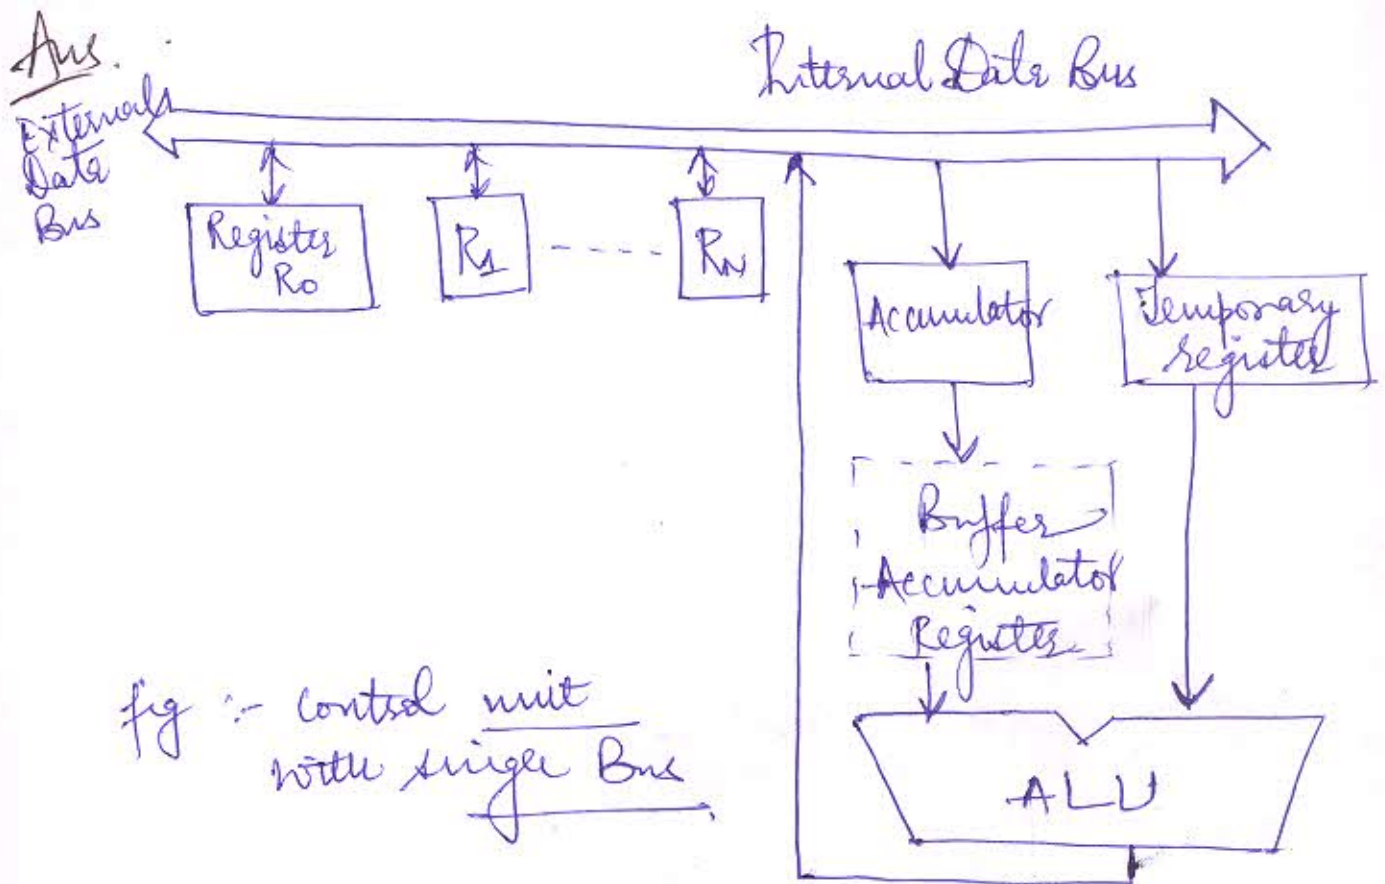 Ans.
External
Data
Bus
Internal Data Bus
Register
R0
R1
RN
Accumulator
Temporary
register
Buffer
Accumulator
Register
ALU
fig :- control unit
with single Bus